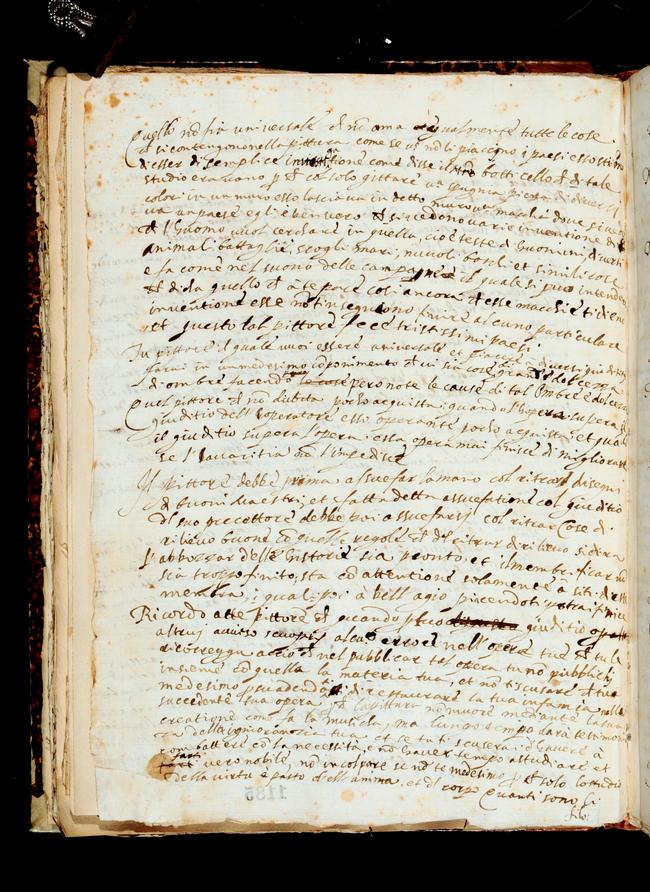 Quello nō sia universale che nō ama equalmente tutte le cose
che si contengono nella pittura, come se uno nō li piacciono i paesi esso stima
d'esser di semplice come disse il nro botticello che di tale
studio era vano pche cō solo gittare una spugnia piena di diversi
color in un muro esso lasciava in detto muro una machia dove si vede
va un paese egli è ben vero che si vedono varie inventione di
che l'huomo vuol cerchare in quella, cioè teste d'huomini, diversi
animali battaglie, scogli mari, nuvoli boschi et simili cose
e fa come nel suono delle campagne il quale si può intendere
che dica quello che a te pare così ancora che esse macchie ti dieno
inventione esse nō t'insegniono finire alcuno particulare
et questo tal pittore fece tristissimi paesi.
Tu pittore il quale vuoi essere universale et piacere a diversi giuditij
farai in un medesimo cōponimento che vi sia cose di dolcezza
d'ombre facendo però note le cause di tal ombre e dolcezza
Quel pittore che nō dubita pocho acquista, quando l'opera supera il
giuditio dell'operatore esso operante pocho acquista et quādo
il giuditio supera l'opera, essa opera mai finisce di migliorare
se l'avaritia nō l'impedisce
Il pittore debbe prima assuefar la mano col ritrar disegni
di buoni Maestri, et fatta detta assuefatione col giuditio
del suo precettore debbe poi assuefarsi col ritrar cose di
rilievo buone cō quelle regole che del ritrar di rilievo si dira
L'abbozzar delle historie sia pronto, et il membrificar nō
sia troppo finito, sta cō attentione solamente à siti di esse
membra, i quali poi à bell'agio piacendoti potrai finire
Ricordo atte pittore che quando p tuo giuditio o per
altrui aviso scuopri alcun errore nell'opere tue che tu le
ricorregga acciò che nel publicar tal opera tu nō publichi
insieme cō quella la materia tua, et nō ti scusare che tu
medesimo psuadendoti di restaurare la tua infamia nella
succedente tua opera, pche la pittura nō muore mediante la sua
creatione come fa la musicha, ma lungo tempo darà testimoni
za della ignorantia tua et se tu ti scuserai d'havere à
combattere cō la necessità, e nō haver tempo a studiare et
farti vero nobile, nō incolpare se nō te medesimo pche solo lo studio
della virtù è pasto dell'anima, et del corpo Quanti sono li
filo:
1185